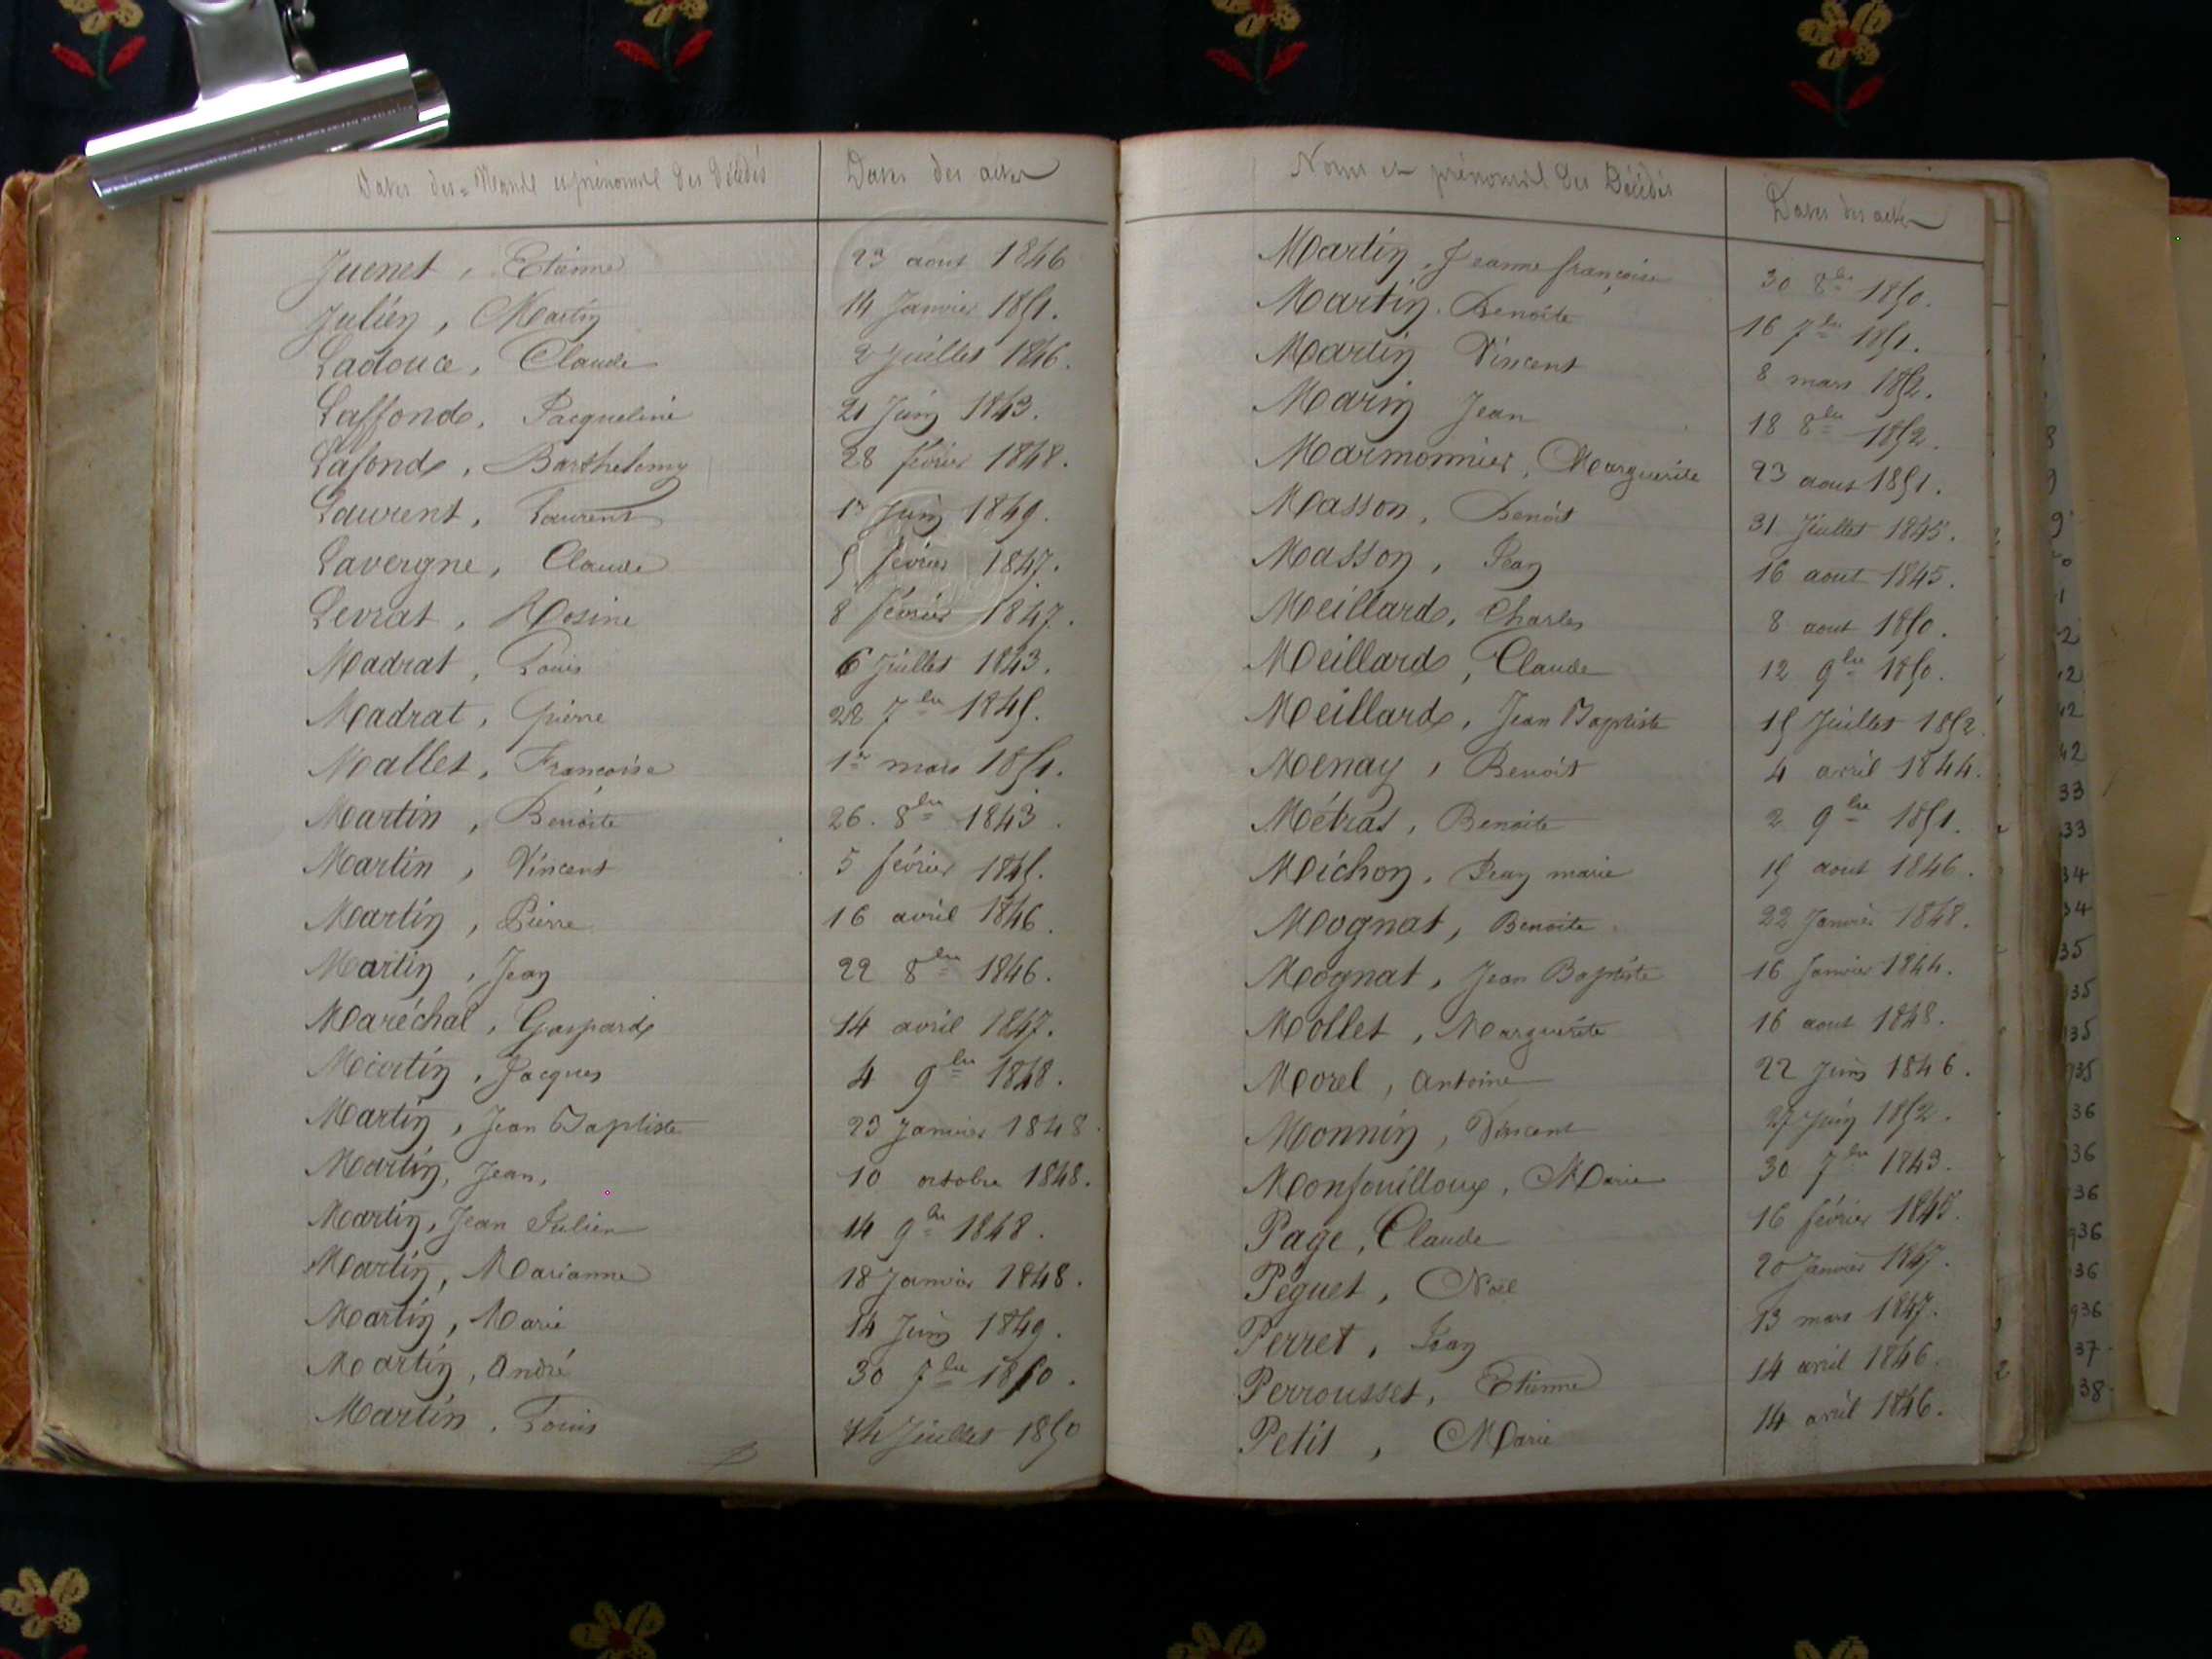 Dates des = Noms et prénoms des Décédés Dates des actes
Juenet, Etienne 23 aout 1846
Julien, Martin 14 Janvier 1851.
Ladouce, Claude 2 Juillet 1846.
Laffond, Jacqueline 21 Juin 1843.
Lafond, Barthelemy 28 février 1848.
Laurent, Laurent 1er Juin 1849.
Lavergne, Claude 5 février 1847.
Levrat, Rosine 8 février 1847.
Madrat, Louis 6 Juillet 1843.
Madrat, Pierre 22 7bre 1845.
Mallet, Françoise 1er mars 1851.
Martin, Benoîte 26. 8bre 1843.
Martin, Vincent 5 février 1845.
Martin, Pierre 16 avril 1846.
Martin, Jean 22 8bre 1846.
Maréchal, Gaspard 14 avril 1847.
Martin, Jacques 4 9bre 1848.
Martin, Jean Baptiste 23 Janvier 1848.
Martin, Jean, 10 octobre 1848.
Martin, Jean Julien 14 9bre 1848.
Martin, Marianne 18 Janvier 1848.
Martin, Marie 14 Juin 1849.
Martin, André 30 7bre 1850.
Martin, Louis Juillet 1850
Noms et prénoms des Décédés Dates des actes
Martin, Jeanne françoise 30 8bre 1850.
Martin, Benoîte 16 7bre 1851.
Martin Vincent 8 mars 1852.
Marin Jean 18 8bre 1852.
Marmonnier, Marguerite 23 aout 1851.
Masson, Benoit 31 Juillet 1845.
Masson, Jean 16 aout 1845.
Meillard, Charles 8 aout 1850.
Meillard, Claude 12 9bre 1850.
Meillard, Jean Baptiste 15 Juillet 1852.
Menay, Benoit 4 avril 1844.
Métras, Benoite 2 9bre 1851.
Michon, Jean marie 15 aout 1846.
Mognat, Benoite 22 Janvier 1848.
Mognat, Jean Baptiste 16 Janvier 1844.
Mollet, Marguerite 16 aout 1848.
Morel, Antoine 22 Juin 1846.
Monnin, Vincent 27 Juin 1852.
Monfouilloux, Marie 30 7bre 1843.
Page, Claude 16 février 1845.
Péguet, Noël 20 Janvier 1847.
Perret, Jean 13 mars 1847.
Perrousset, Etienne 14 avril 1846.
Petit, Marie 14 avril 1846.